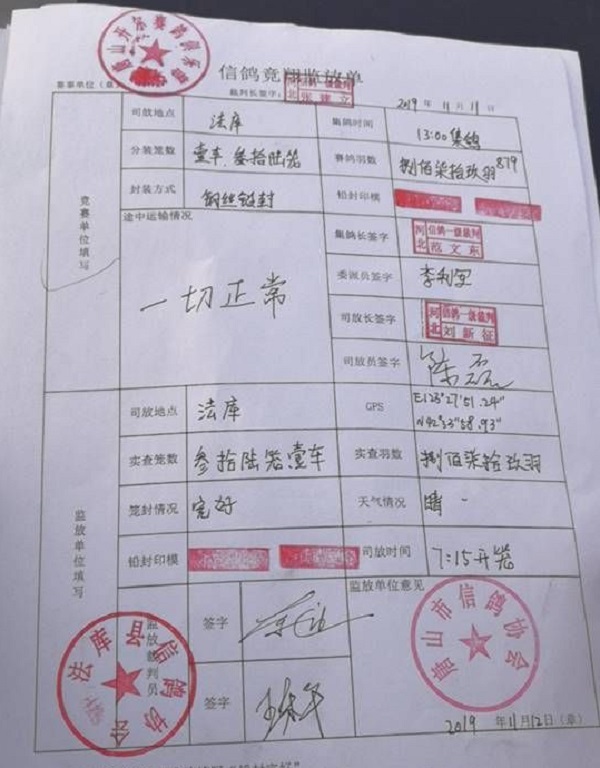 信鸽竞翔监放单
赛事单位(章)
裁判长签字:
张建文
2019 年 11 月 11 日
竞赛单位填写
司放地点 法库 集鸽时间 13:00集鸽
分装笼数 壹车 叁拾陆笼 赛鸽羽数 捌佰柒拾玖羽 879
封装方式 钢丝铅封 铅封印模
途中运输情况 集鸽长签字 河北 信鸽一级裁判 范文东
一切正常 委派员签字 李利军
司放长签字 河北 信鸽一级裁判 刘新征
司放员签字 陈磊
监放单位填写
司放地点 法库 GPS E123°27'51.24"
N42°33'58.93"
实查笼数 叁拾陆笼壹车 实查羽数 捌佰柒拾玖羽
笼封情况 完好 天气情况 晴
铅封印模 司放时间 7:15开笼
监放裁判员 签字 监放单位意见
签字
法库县信鸽协会
唐山市信鸽协会
2019 年 11 月 12 日(章)